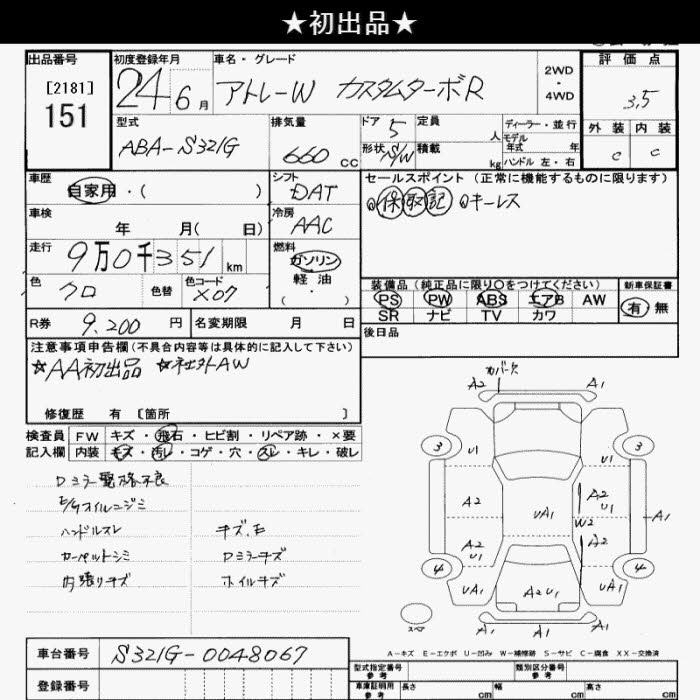 ★初出品★
出品番号
[2181]
151
初度登録年月
24 6月
車名・グレード
アトレーW カスタムターボR
2WD・4WD
評価点
3.5
型式
ABA-S321G
排気量
660 CC
ドア 5
定員 人
形状 S/W
積載 kg
ディーラー・並行
モデル年式 年
ハンドル 左・右
外装 内装
C C
車歴
自家用・( )
シフト
DAT
セールスポイント (正常に機能するものに限ります)
◎保取記 ◎キーレス
車検
年 月( 日)
冷房
AAC
走行
9万0千351 km
燃料
ガソリン
軽油
( ・ )
色
クロ
色替
色コード
X07
装備品(純正品に限り○をつけてください)
PS PW ABS エアB AW
SR ナビ TV カワ
新車保証書
有・無
R券 9.200 円
名変期限 月 日
後日品
注意事項申告欄(不具合内容等は具体的に記入して下さい)
☆AA初出品 ☆社外AW
修復歴 有 〔箇所 〕
検査員記入欄
FW キズ・飛石・ヒビ割・リペア跡・×要
内装 キズ・汚レ・コゲ・穴・スレ・キレ・破レ
Dミラー電格不良
E/gオイルニジミ
ハンドルスレ
カーペットシミ
内張りキズ
キズ、E
Dミラーキズ
ホイルキズ
カバーべ
A2 A1
3 3
U1 U1
A2 UA1 A2 U1
A1
W2
A2 U1 A2
4 4
UA1 A2U1 UA1
スペア
A1 A1
A-キズ E-エクボ U-凹み W-補修跡 S-サビ C-腐食 XX-交換済
車台番号 S321G-0048067
登録番号
型式指定番号 参考
類別区分番号 参考
車庫証明用 参考
長さ cm
幅 cm
高さ cm